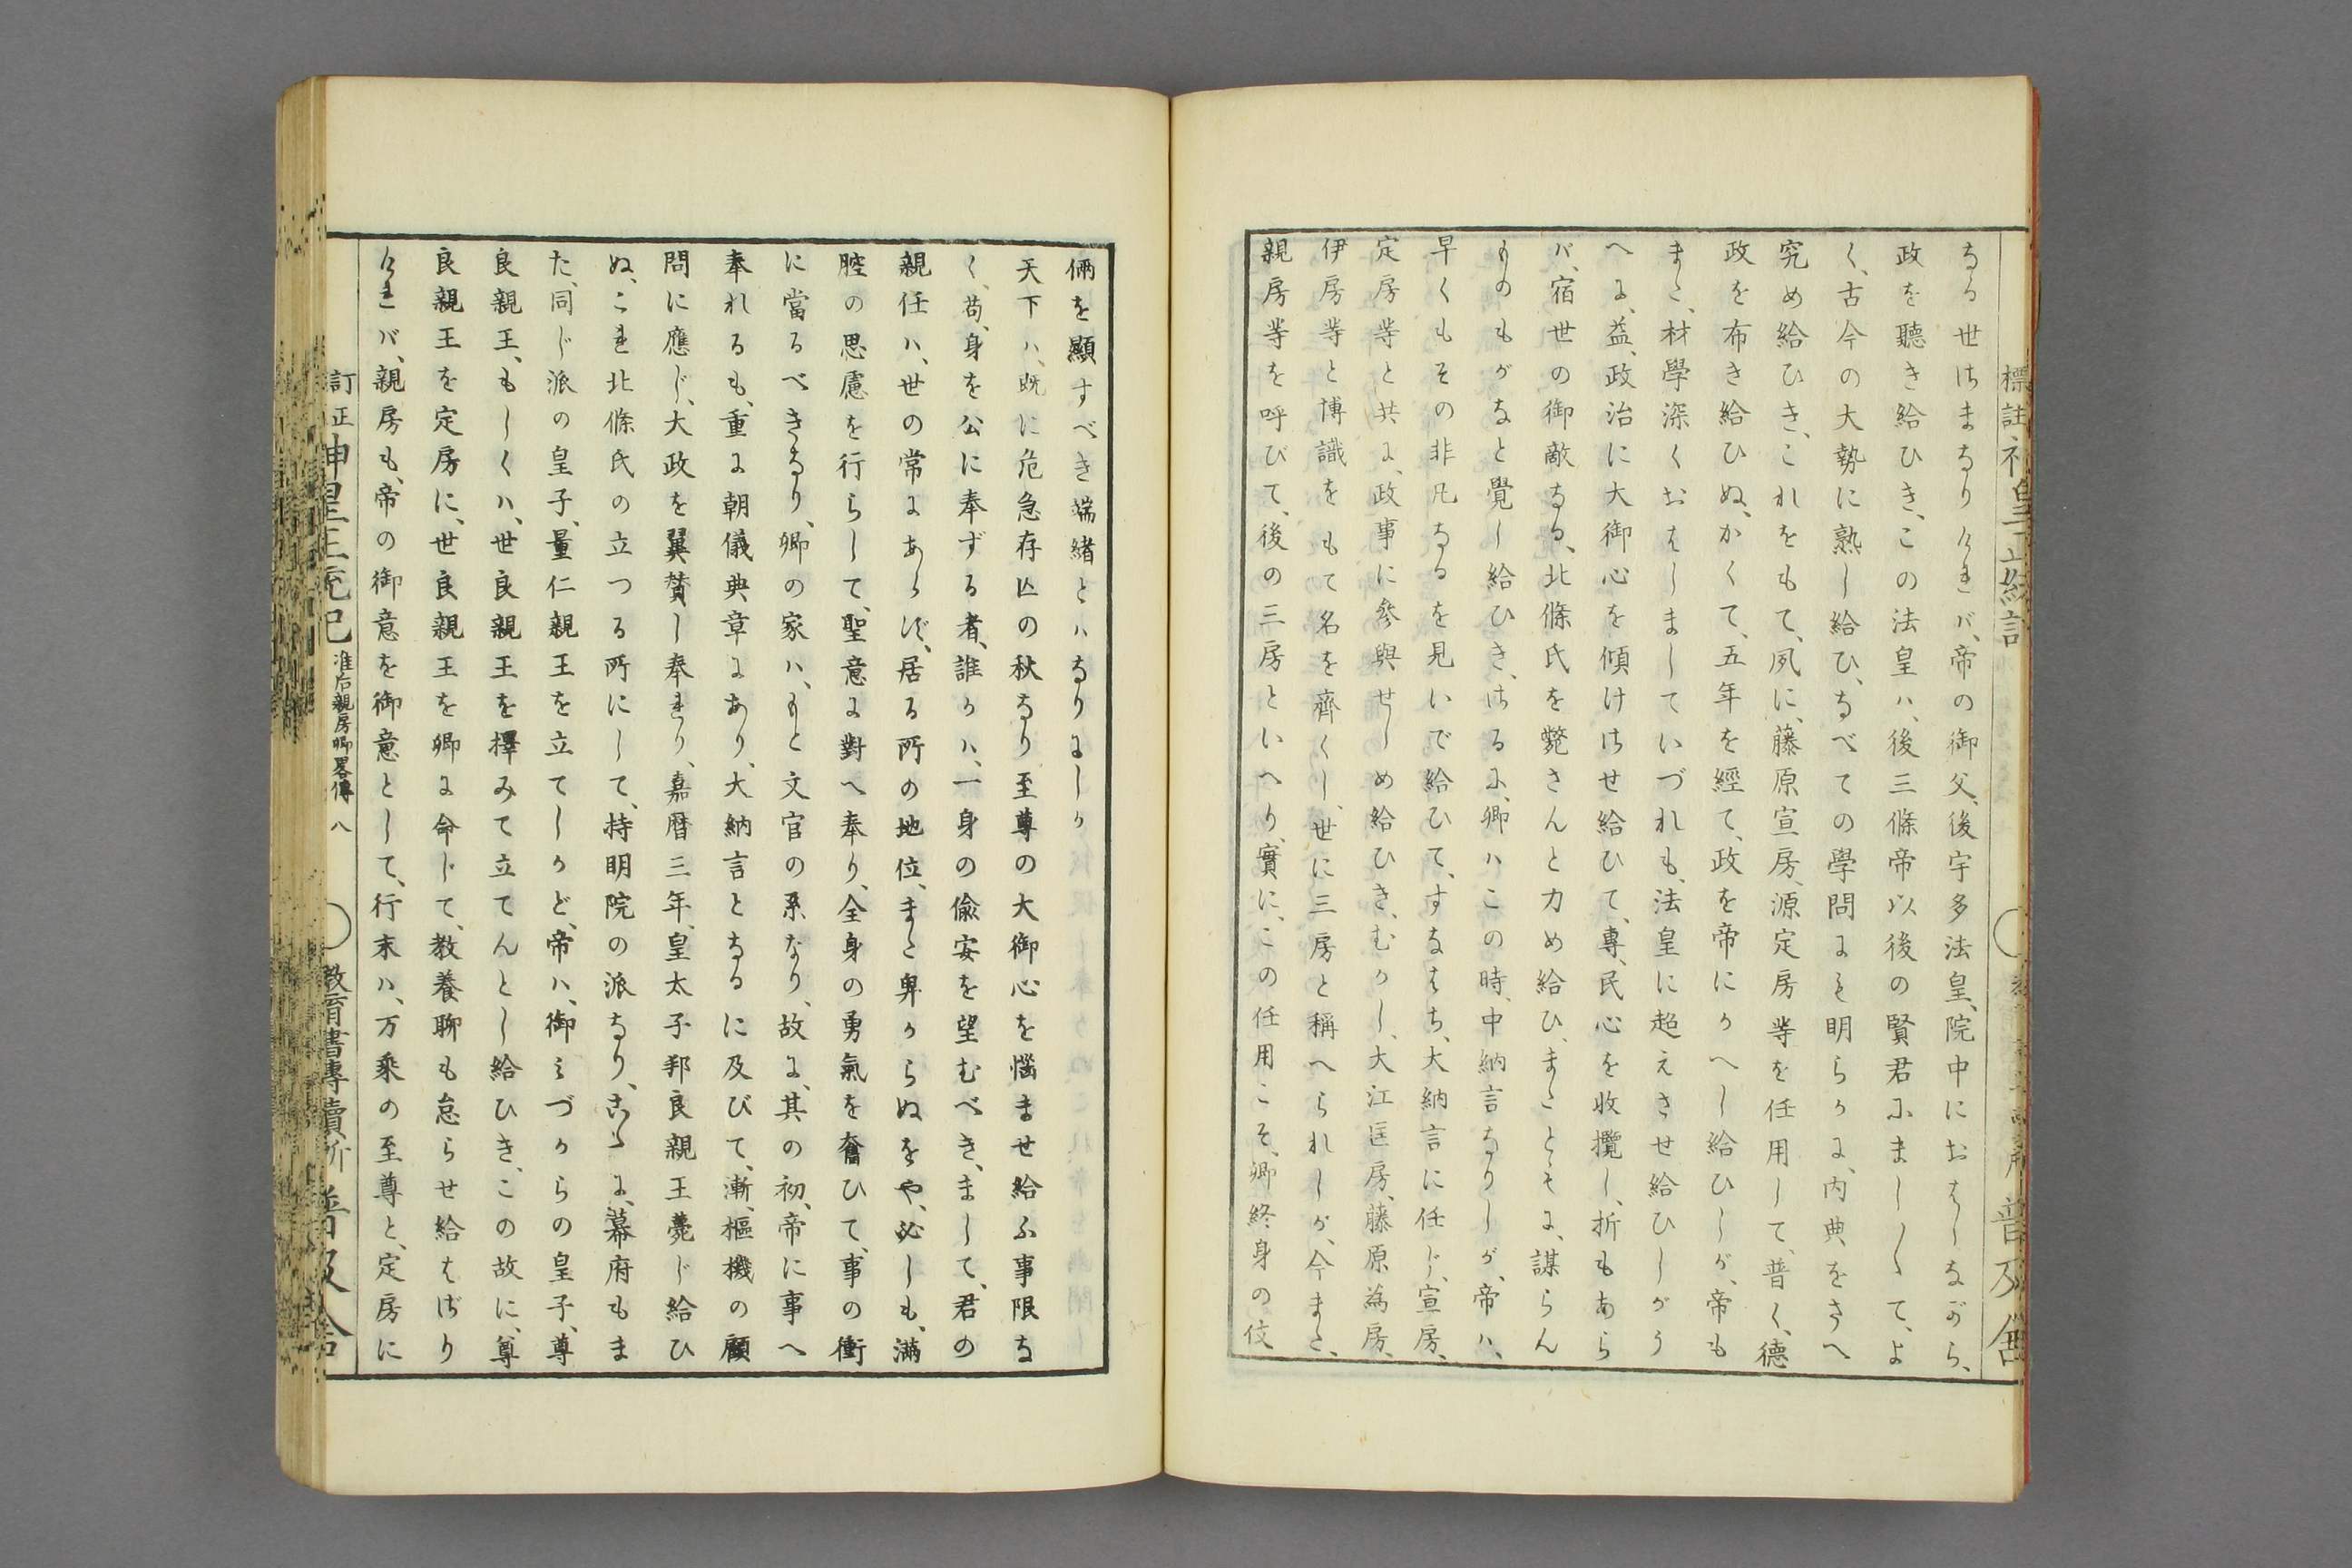 なる世はまなりければ、帝の御父、後宇多法皇、院中におはしながら、
政を聽き給ひき、この法皇ハ、後三條帝以後の賢君にましまして、よ
く、古今の大勢に熟し給ひ、なべての學問にも明らかに、内典をさへ
究め給ひき、これをもて、夙に、藤原宣房、源定房等を任用して、普く、德
政を布き給ひぬ、かくて、五年を經て、政を帝にかへし給ひしが、帝も
また、材學深くおはしましていづれも、法皇に超えさせ給ひしがう
へに、益、政治に大御心を傾けはせ給ひて、專、民心を收攬し、折もあら
バ、宿世の御敵なる、北條氏を斃さんと力め給ひ、またともに、謀らん
ものもがなと覺し給ひき、はるに、卿ハこの時、中納言なりしが、帝ハ、
早くもその非凡なるを見いで給ひて、すなはち、大納言に任じ、宣房、
定房等と共に、政事に參與せしめ給ひき、むかし、大江匡房、藤原為房、
伊房等と博識をもて名を齊くし、世に三房と稱へられしが、今また、
親房等を呼びて、後の三房といへり、實に、この任用こそ、卿終身の伎
倆を顯すべき端緒とハなりにしか
天下ハ、既に危急存亡の秋なり至尊の大御心を惱ませ給ふ事限な
く、苟、身を公に奉ずる者、誰かハ、一身の偸安を望むべき、まして、君の
親任ハ、世の常にあらず、居る所の地位、また卑からぬをや、必しも、滿
腔の思慮を行らして、聖意に對へ奉り、全身の勇氣を奮ひて、事の衝
に當るべきなり、卿の家ハ、もと文官の系なり、故に、其の初、帝に事へ
奉れるも、重に朝儀典章にあり、大納言となるに及びて、漸、樞機の顧
問に應じ、大政を翼賛し奉れり、嘉曆三年、皇太子邦良親王薨じ給ひ
ぬ、これ北條氏の立つる所にして、持明院の派なり、こゝに、幕府もま
た、同じ派の皇子、量仁親王を立てしかど、帝ハ、御みづからの皇子、尊
良親王、もしくハ、世良親王を擇みて立てんとし給ひき、この故に、尊
良親王を定房に、世良親王を卿に命じて、教養聊も怠らせ給はざり
ければ、親房も、帝の御意を御意として、行末ハ、万乘の至尊と、定房に
訂正神皇正統記 准后親房卿畧傳 八 教育書專賣所 普及舍